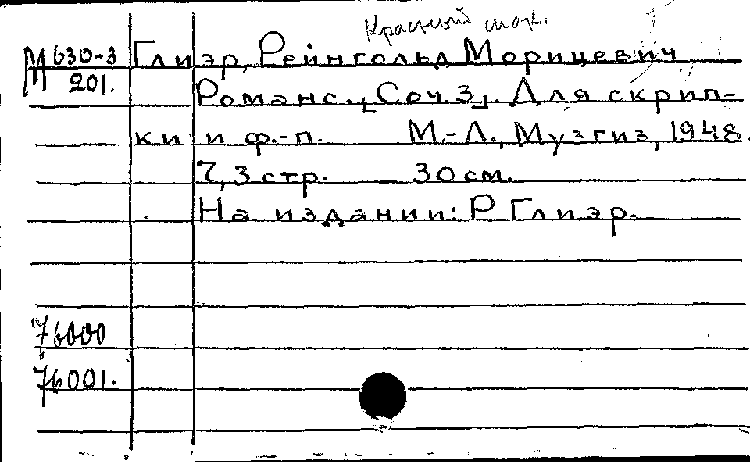 М 630-3
201.
Глиэр, Рейнгольд Морицевич
Романс. [Соч. 3]. Для скрип-
ки и ф.-п. М.-Л., Музгиз, 1948.
7, 3 стр. 30 см.
На издании: Р Глиэр.
76000
76001.